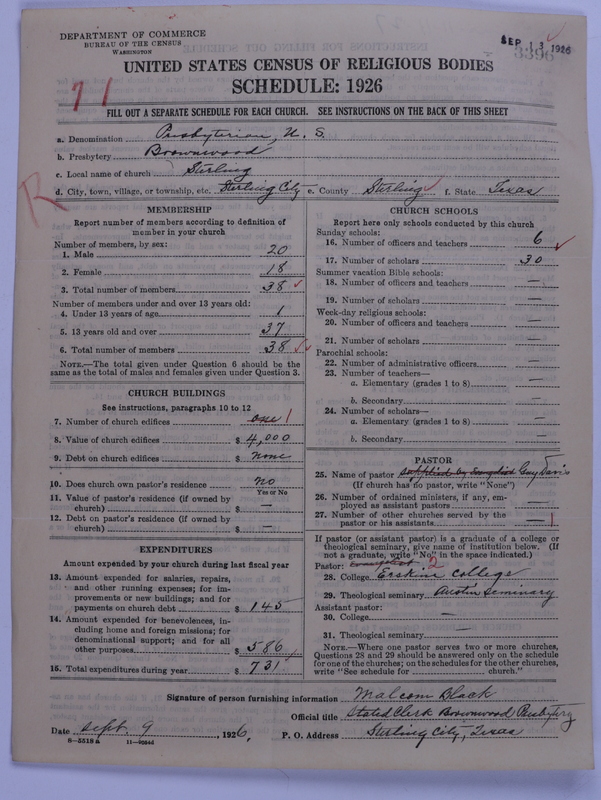 DEPARTMENT OF COMMERCE
BUREAU OF THE CENSUS
WASHINGTON
SEP 13 1926
3396
UNITED STATES CENSUS OF RELIGIOUS BODIES
SCHEDULE: 1926
71
FILL OUT A SEPARATE SCHEDULE FOR EACH CHURCH. SEE INSTRUCTIONS ON THE BACK OF THIS SHEET
a. Denomination Presbyterian, U. S.
b. Presbytery Brownwood
c. Local name of church Sterling
d. City, town, village, or township, etc. Sterling City e. County Sterling f. State Texas
R
MEMBERSHIP
Report number of members according to definition of
member in your church
Number of members, by sex:
1. Male 20
2. Female 18
3. Total number of members 38
Number of members under and over 13 years old:
4. Under 13 years of age 1
5. 13 years old and over 37
6. Total number of members 38
NOTE.—The total given under Question 6 should be
same as the total of males and females given under Question 3.
CHURCH BUILDINGS
See instructions, paragraphs 10 to 12
7. Number of church edifices one 1
8. Value of church edifices $ 4,000
9. Debt on church edifices $ none
10. Does church own pastor's residence no
Yes or No
11. Value of pastor's residence (if owned by
church) $ —
12. Debt on pastor's residence (if owned by
church) $ —
EXPENDITURES
Amount expended by your church during last fiscal year
13. Amount expended for salaries, repairs,
and other running expenses; for im-
provements or new buildings; and for
payments on church debt $ 145
14. Amount expended for benevolences, in-
cluding home and foreign missions; for
denominational support; and for all
other purposes $ 586
15. Total expenditures during year $ 731
CHURCH SCHOOLS
Report here only schools conducted by this church
Sunday schools:
16. Number of officers and teachers 6
17. Number of scholars 30
Summer vacation Bible schools:
18. Number of officers and teachers —
19. Number of scholars —
Week-day religious schools:
20. Number of officers and teachers —
21. Number of scholars —
Parochial schools:
22. Number of administrative officers —
23. Number of teachers—
a. Elementary (grades 1 to 8) —
b. Secondary —
24. Number of scholars—
a. Elementary (grades 1 to 8) —
b. Secondary —
PASTOR
25. Name of pastor supplied by Evangelist Guy Davis
(If church has no pastor, write "None")
26. Number of ordained ministers, if any, em-
ployed as assistant pastors —
27. Number of other churches served by the
pastor or his assistants — 1
If pastor (or assistant pastor) is a graduate of a college or
theological seminary, give name of institution below. (If
not a graduate, write "No" in the space indicated.)
Pastor: evangelist 2
28. College Erskine College
29. Theological seminary Austin Seminary
Assistant pastor:
30. College —
31. Theological seminary —
NOTE.—Where one pastor serves two or more churches,
Questions 28 and 29 should be answered only on the schedule
for one of the churches; on the schedules for the other churches,
write "See schedule for church."
Signature of person furnishing information Malcom Black
Official title Stated Clerk Brownwood Presbytery
Date Sept. 9, 1926. P. O. Address Sterling City, Texas
8—5518 a